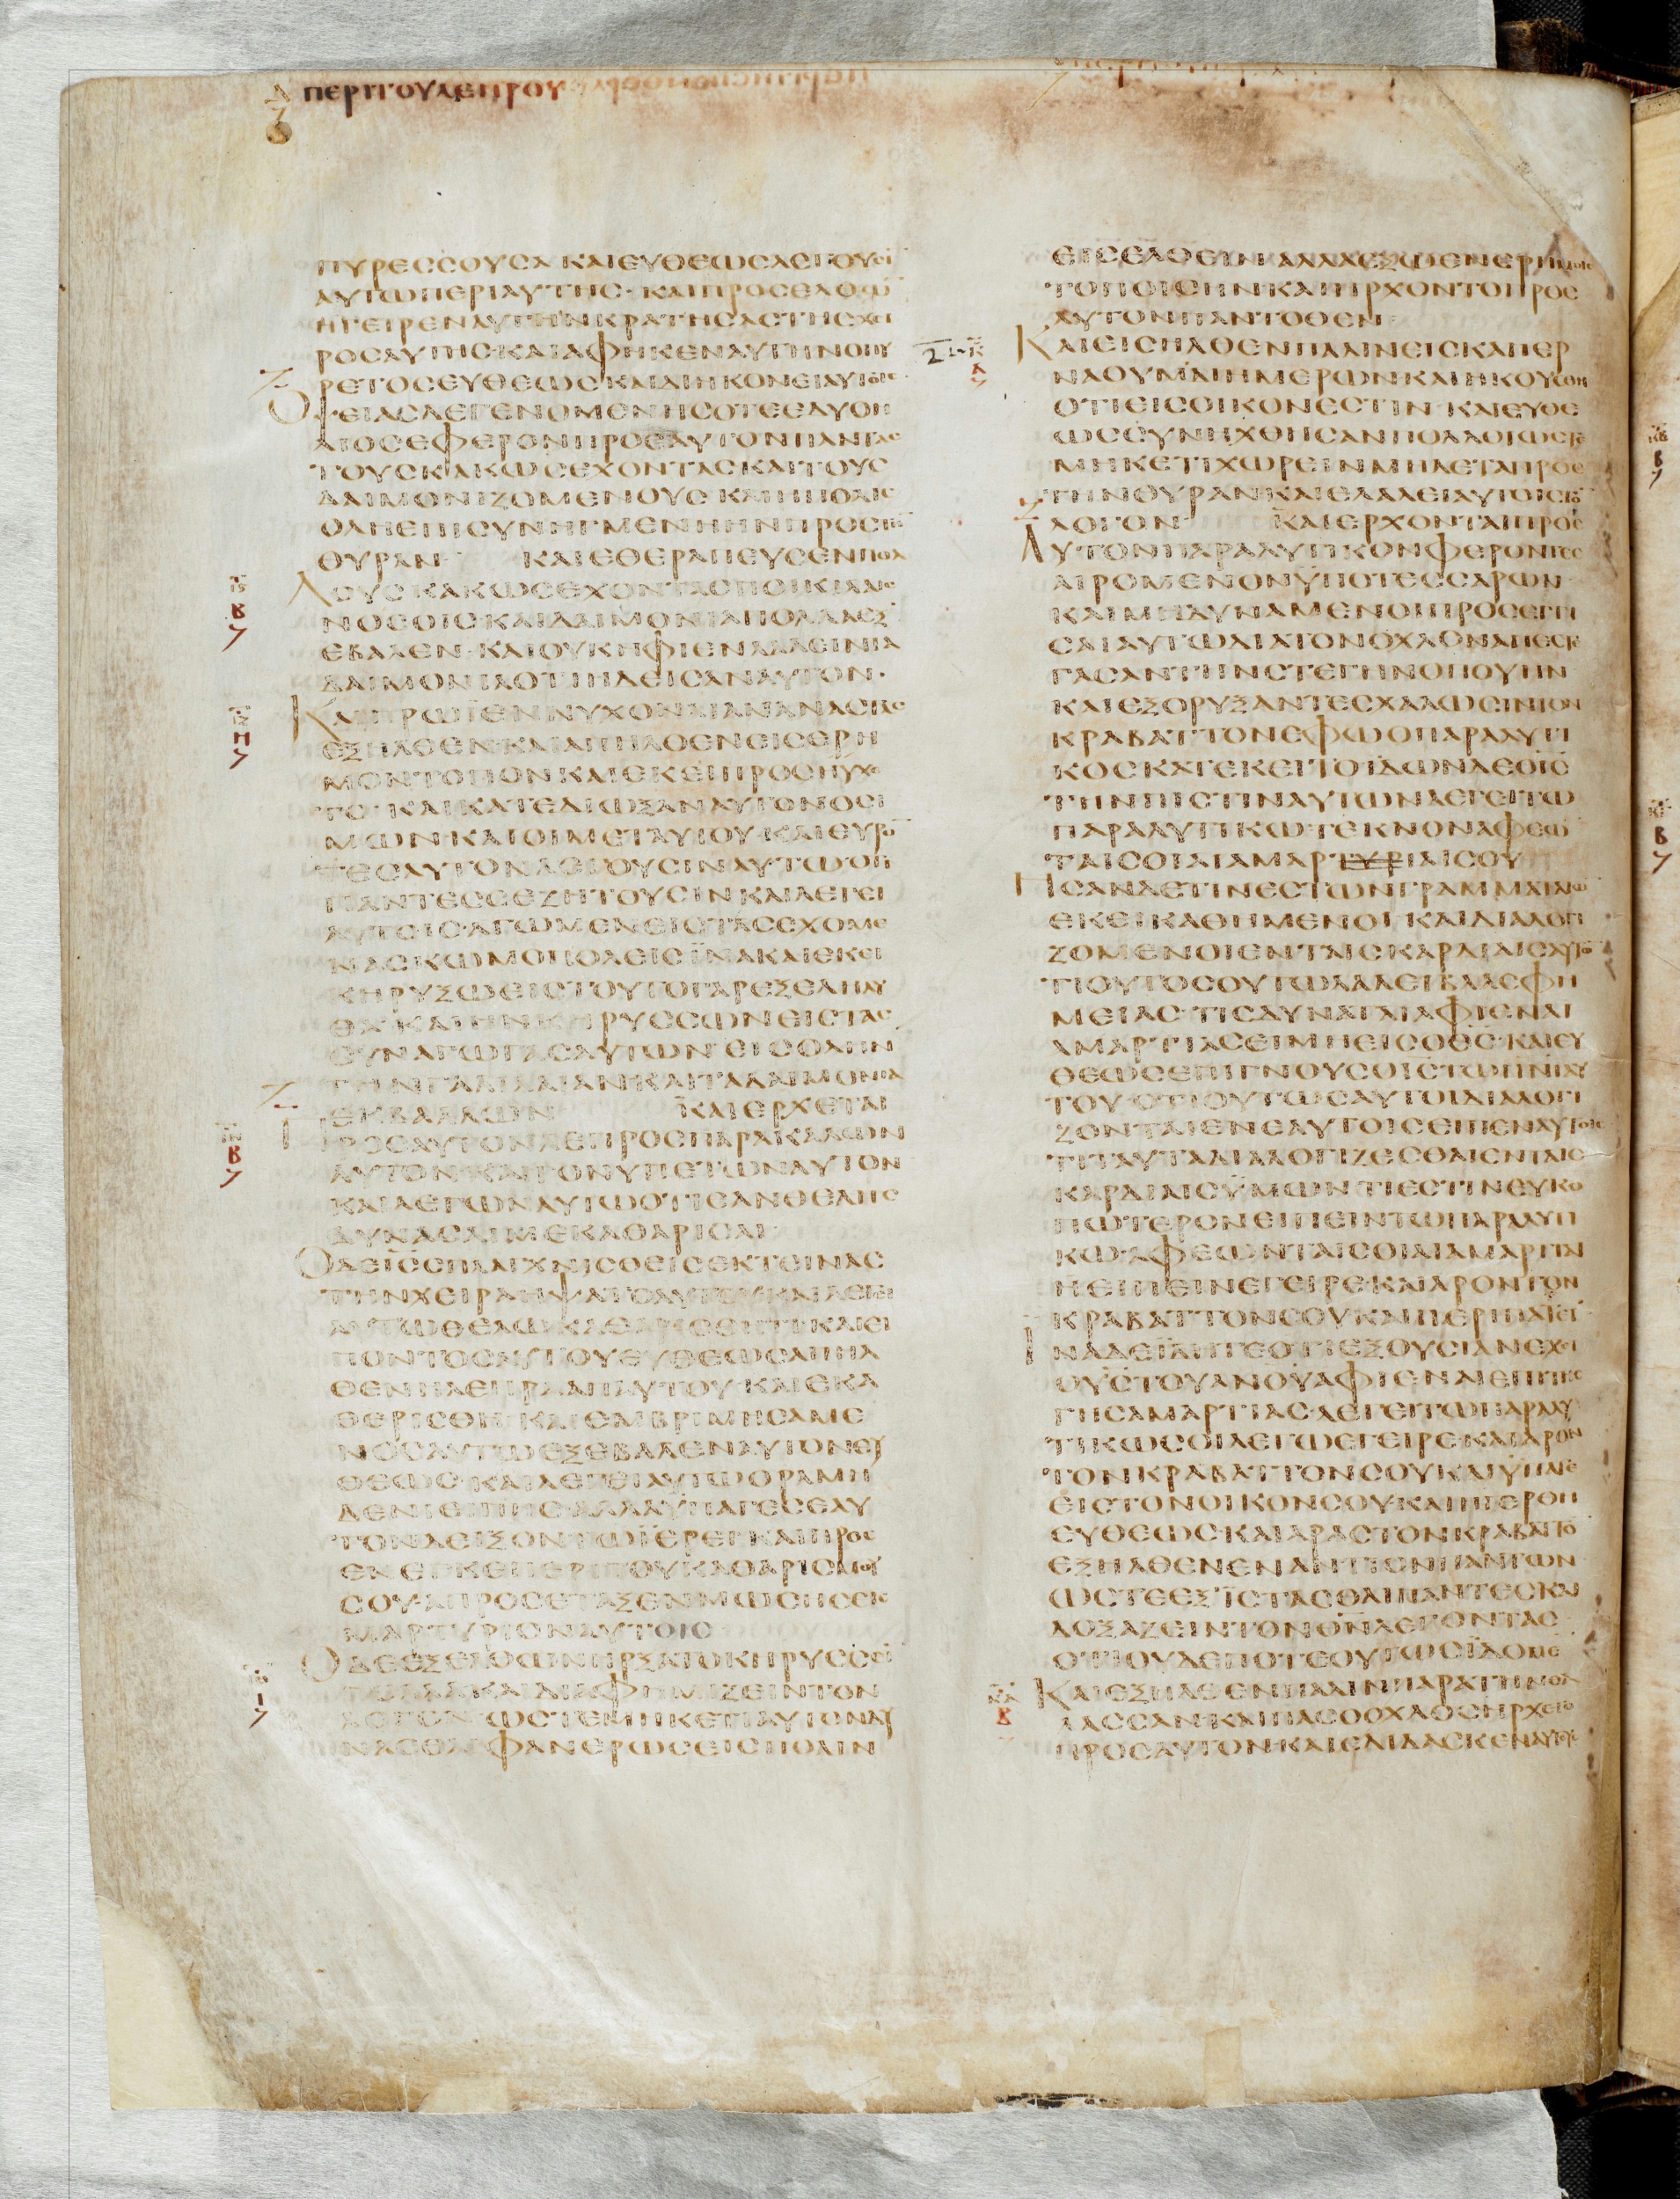 ΠΕΡΙΤΟΥΛΕΠΡΟΥ
ΠΥΡΕССΟΥСΑΚΑΙΕΥΘΕΩСΛΕΓΟΥСΙ
ΑΥΤΩΠΕΡΙΑΥΤΗС·ΚΑΙΠΡΟСΕΛΘΩ
ΗΓΕΙΡΕΝΑΥΤΗΝΚΡΑΤΗСΑСΤΗСΧΕΙ
ΡΟСΑΥΤΗС·ΚΑΙΑΦΗΚΕΝΑΥΤΗΝΟΠΥ
ΡΕΤΟСΕΥΘΕΩСΚΑΙΔΙΗΚΟΝΕΙΑΥΤΟΙС
ΟΨΕΙΑСΔΕΓΕΝΟΜΕΝΗСΟΤΕΕΔΥΟΗ
ΛΙΟСΕΦΕΡΟΝΠΡΟСΑΥΤΟΝΠΑΝΤΑС
ΤΟΥСΚΑΚΩСΕΧΟΝΤΑСΚΑΙΤΟΥС
ΔΑΙΜΟΝΙΖΟΜΕΝΟΥС·ΚΑΙΗΠΟΛΙС
ΟΛΗΕΠΙСΥΝΗΓΜΕΝΗΗΝΠΡΟСΤΗ
ΘΥΡΑΝ ΚΑΙΕΘΕΡΑΠΕΥСΕΝΠΟΛ
ΛΟΥСΚΑΚΩСΕΧΟΝΤΑСΠΟΙΚΙΛΑΙС
ΝΟСΟΙСΚΑΙΔΑΙΜΟΝΙΑΠΟΛΛΑΕΞ
ΕΒΑΛΕΝ·ΚΑΙΟΥΚΗΦΙΕΝΛΑΛΕΙΝΤΑ
ΔΑΙΜΟΝΙΑΟΤΙΗΔΕΙСΑΝΑΥΤΟΝ·
ΚΑΙΠΡΩΪΕΝΝΥΧΟΝΛΙΑΝΑΝΑСΤΑС
ΕΞΗΛΘΕΝ·ΚΑΙΑΠΗΛΘΕΝΕΙСΕΡΗ
ΜΟΝΤΟΠΟΝΚΑΙΕΚΕΙΠΡΟСΗΥΧΕ
ΤΟ·ΚΑΙΚΑΤΕΔΙΩΞΑΝΑΥΤΟΝΟСΙ
ΜΩΝ·ΚΑΙΟΙΜΕΤΑΥΤΟΥ·ΚΑΙΕΥΡΟ
ΤΕСΑΥΤΟΝΛΕΓΟΥСΙΝΑΥΤΩΟΤΙ
ΠΑΝΤΕССΕΖΗΤΟΥСΙΝΚΑΙΛΕΓΕΙ
ΑΥΤΟΙС·ΑΓΩΜΕΝΕΙСΤΑСΕΧΟΜΕ
ΝΑСΚΩΜΟΠΟΛΕΙСΪΝΑΚΑΙΕΚΕΙ
ΚΗΡΥΞΩΕΙСΤΟΥΤΟΓΑΡΕΞΕΛΗΛΥ
ΘΑ·ΚΑΙΗΝΚΗΡΥССΩΝΕΙСΤΑС
СΥΝΑΓΩΓΑСΑΥΤΩΝ·ΕΙСΟΛΗΝ
ΤΗΝΓΑΛΙΛΑΙΑΝ·ΚΑΙΤΑΔΑΙΜΟΝΙΑ
ΕΚΒΑΛΛΩΝ ΚΑΙΕΡΧΕΤΑΙ
ΠΡΟСΑΥΤΟΝΛΕΠΡΟСΠΑΡΑΚΑΛΩΝ
ΑΥΤΟΝ·ΚΑΙΓΟΝΥΠΕΤΩΝΑΥΤΟΝ
ΚΑΙΛΕΓΩΝΑΥΤΩΟΤΙΕΑΝΘΕΛΗС
ΔΥΝΑСΑΙΜΕΚΑΘΑΡΙСΑΙ
ΟΔΕΙССΠΛΑΓΧΝΙСΘΕΙСΕΚΤΕΙΝΑС
ΤΗΝΧΕΙΡΑΗΨΑΤΟΑΥΤΟΥ·ΚΑΙΛΕΓΕΙ
ΑΥΤΩΘΕΛΩΚΑΘΑΡΙСΘΗΤΙ·ΚΑΙΕΙ
ΠΟΝΤΟСΑΥΤΟΥΕΥΘΕΩСΑΠΗΛ
ΘΕΝΗΛΕΠΡΑΑΠΑΥΤΟΥ·ΚΑΙΕΚΑ
ΘΕΡΙСΘΗ·ΚΑΙΕΜΒΡΙΜΗСΑΜΕ
ΝΟСΑΥΤΩΕΞΕΒΑΛΕΝΑΥΤΟΝΕΥ
ΘΕΩС·ΚΑΙΛΕΓΕΙΑΥΤΩΟΡΑΜΗ
ΔΕΝΙΕΙΠΗС·ΑΛΛΑΫΠΑΓΕСΕΑΥ
ΤΟΝΔΕΙΞΟΝΤΩΪΕΡΕΙ·ΚΑΙΠΡΟС
ΕΝΕΓΚΕΠΕΡΙΤΟΥΚΑΘΑΡΙСΜΟΥ
СΟΥ·ΑΠΡΟСΕΤΑΞΕΝΜΩСΗСΕΙС
ΜΑΡΤΥΡΙΟΝΑΥΤΟΙС
ΟΔΕΕΞΕΛΘΩΝΗΡΞΑΤΟΚΗΡΥССΕΙ
ΠΟΛΛΑ·ΚΑΙΔΙΑΦΗΜΙΖΕΙΝΤΟΝ
ΛΟΓΟΝ·ΩСΤΕΜΗΚΕΤΙΑΥΤΟΝΔΥ
ΝΑСΘΑΙΦΑΝΕΡΩСΕΙСΠΟΛΙΝ
ΕΙСΕΛΘΕΙΝ·ΑΛΛΑΕΞΩΕΝΕΡΗΜΟΙС
ΤΟΠΟΙСΗΝ·ΚΑΙΗΡΧΟΝΤΟΠΡΟС
ΑΥΤΟΝΠΑΝΤΟΘΕΝ
ΚΑΙΕΙСΗΛΘΕΝΠΑΛΙΝΕΙСΚΑΠΕΡ
ΝΑΟΥΜΔΙΗΜΕΡΩΝ·ΚΑΙΗΚΟΥСΘΗ
ΟΤΙΕΙСΟΙΚΟΝΕСΤΙΝ·ΚΑΙΕΥΘΕ
ΩССΥΝΗΧΘΗСΑΝΠΟΛΛΟΙΩСΤΕ
ΜΗΚΕΤΙΧΩΡΕΙΝΜΗΔΕΤΑΠΡΟС
ΤΗΝΘΥΡΑΝ·ΚΑΙΕΛΑΛΕΙΑΥΤΟΙСΤΟ
ΛΟΓΟΝ ΚΑΙΕΡΧΟΝΤΑΙΠΡΟС
ΑΥΤΟΝΠΑΡΑΛΥΤΙΚΟΝΦΕΡΟΝΤΕС
ΑΙΡΟΜΕΝΟΝΫΠΟΤΕССΑΡΩΝ
ΚΑΙΜΗΔΥΝΑΜΕΝΟΙΠΡΟСΕΓΓΙ
СΑΙΑΥΤΩΔΙΑΤΟΝΟΧΛΟΝΑΠΕСΤΕ
ΓΑСΑΝΤΗΝСΤΕΓΗΝΟΠΟΥΗΝ
ΚΑΙΕΞΟΡΥΞΑΝΤΕСΧΑΛΩСΙΝΤΟΝ
ΚΡΑΒΑΤΤΟΝΕΦΩΟΠΑΡΑΛΥΤΙ
ΚΟСΚΑΤΕΚΕΙΤΟΪΔΩΝΔΕΟΙС
ΤΗΝΠΙСΤΙΝΑΥΤΩΝΛΕΓΕΙΤΩ
ΠΑΡΑΛΥΤΙΚΩ·ΤΕΚΝΟΝΑΦΕΩ
ΤΑΙСΟΙΑΙΑΜΑΡΤΥΡΙΑΙСΟΥ
ΗСΑΝΔΕΤΙΝΕСΤΩΝΓΡΑΜΜΑΤΑΙΩ
ΕΚΕΙΚΑΘΗΜΕΝΟΙ·ΚΑΙΔΙΑΛΟΓΙ
ΖΟΜΕΝΟΙΕΝΤΑΙСΚΑΡΔΙΑΙСΑΥΤΩ
ΤΙΟΥΤΟСΟΥΤΩΛΑΛΕΙΒΛΑСΦΗ
ΜΕΙΑС·ΤΙСΔΥΝΑΤΑΙΑΦΙΕΝΑΙ
ΑΜΑΡΤΙΑСΕΙΜΗΕΙСΟΘС·ΚΑΙΕΥ
ΘΕΩСΕΠΙΓΝΟΥСΟΙСΤΩΠΝΙΑΥ
ΤΟΥ·ΟΤΙΟΥΤΩСΑΥΤΟΙΔΙΑΛΟΓΙ
ΖΟΝΤΑΙΕΝΕΑΥΤΟΙСΕΙΠΕΝΑΥΤΟΙС
ΤΙΤΑΥΤΑΔΙΑΛΟΓΙΖΕСΘΑΙΕΝΤΑΙС
ΚΑΡΔΙΑΙСΫΜΩΝΤΙΕСΤΙΝΕΥΚΟ
ΠΩΤΕΡΟΝΕΙΠΕΙΝΤΩΠΑΡΑΛΥΤΙ
ΚΩ·ΑΦΕΩΝΤΑΙСΟΙΑΙΑΜΑΡΤΙΑΙ
ΗΕΙΠΕΙΝΕΓΕΙΡΕ·ΚΑΙΑΡΟΝΤΟΝ
ΚΡΑΒΑΤΤΟΝСΟΥΚΑΙΠΕΡΙΠΑΤΕΙ
ΙΝΑΔΕΪΔΗΤΕΟΤΙΕΞΟΥСΙΑΝΕΧΕΙ
ΟΥСΤΟΥΑΝΟΥΑΦΙΕΝΑΙΕΠΙΤΗС
ΓΗСΑΜΑΡΤΙΑС·ΛΕΓΕΙΤΩΠΑΡΑΛΥ
ΤΙΚΩСΟΙΛΕΓΩΕΓΕΙΡΕ·ΚΑΙΑΡΟΝ
ΤΟΝΚΡΑΒΑΤΤΟΝСΟΥΚΑΙΫΠΑΓΕ
ΕΙСΤΟΝΟΙΚΟΝСΟΥ·ΚΑΙΗΓΕΡΘΗ
ΕΥΘΕΩС·ΚΑΙΑΡΑСΤΟΝΚΡΑΒΑΤΤΟ
ΕΞΗΛΘΕΝΕΝΑΝΤΙΟΝΠΑΝΤΩΝ
ΩСΤΕΕΞΪСΤΑСΘΑΙΠΑΝΤΕСΚΑΙ
ΔΟΞΑΖΕΙΝΤΟΝΘΝΛΕΓΟΝΤΑС
ΟΤΙΟΥΔΕΠΟΤΕΟΥΤΩСΪΔΟΜΕ
ΚΑΙΕΞΗΛΘΕΝΠΑΛΙΝΠΑΡΑΤΗΝΘΑ
ΛΑССΑΝ·ΚΑΙΠΑСΟΟΧΛΟСΗΡΧΕΤΟ
ΠΡΟСΑΥΤΟΝ·ΚΑΙΕΔΙΔΑСΚΕΝΑΥΤΟΥС